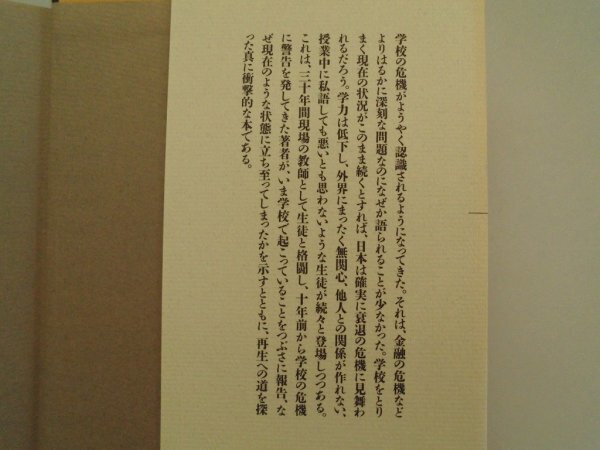 学校の危機がようやく認識されるようになってきた。それは、金融の危機など
よりはるかに深刻な問題なのになぜか語られることが少なかった。学校をとり
まく現在の状況がこのまま続くとすれば、日本は確実に衰退の危機に見舞わ
れるだろう。学力は低下し、外界にまったく無関心、他人との関係が作れない、
授業中に私語しても悪いとも思わないような生徒が続々と登場しつつある。
これは、三十年間現場の教師として生徒と格闘し、十年前から学校の危機
に警告を発してきた著者が、いま学校で起こっていることをつぶさに報告、な
ぜ現在のような状態に立ち至ってしまったかを示すとともに、再生への道を探
った真に衝撃的な本である。